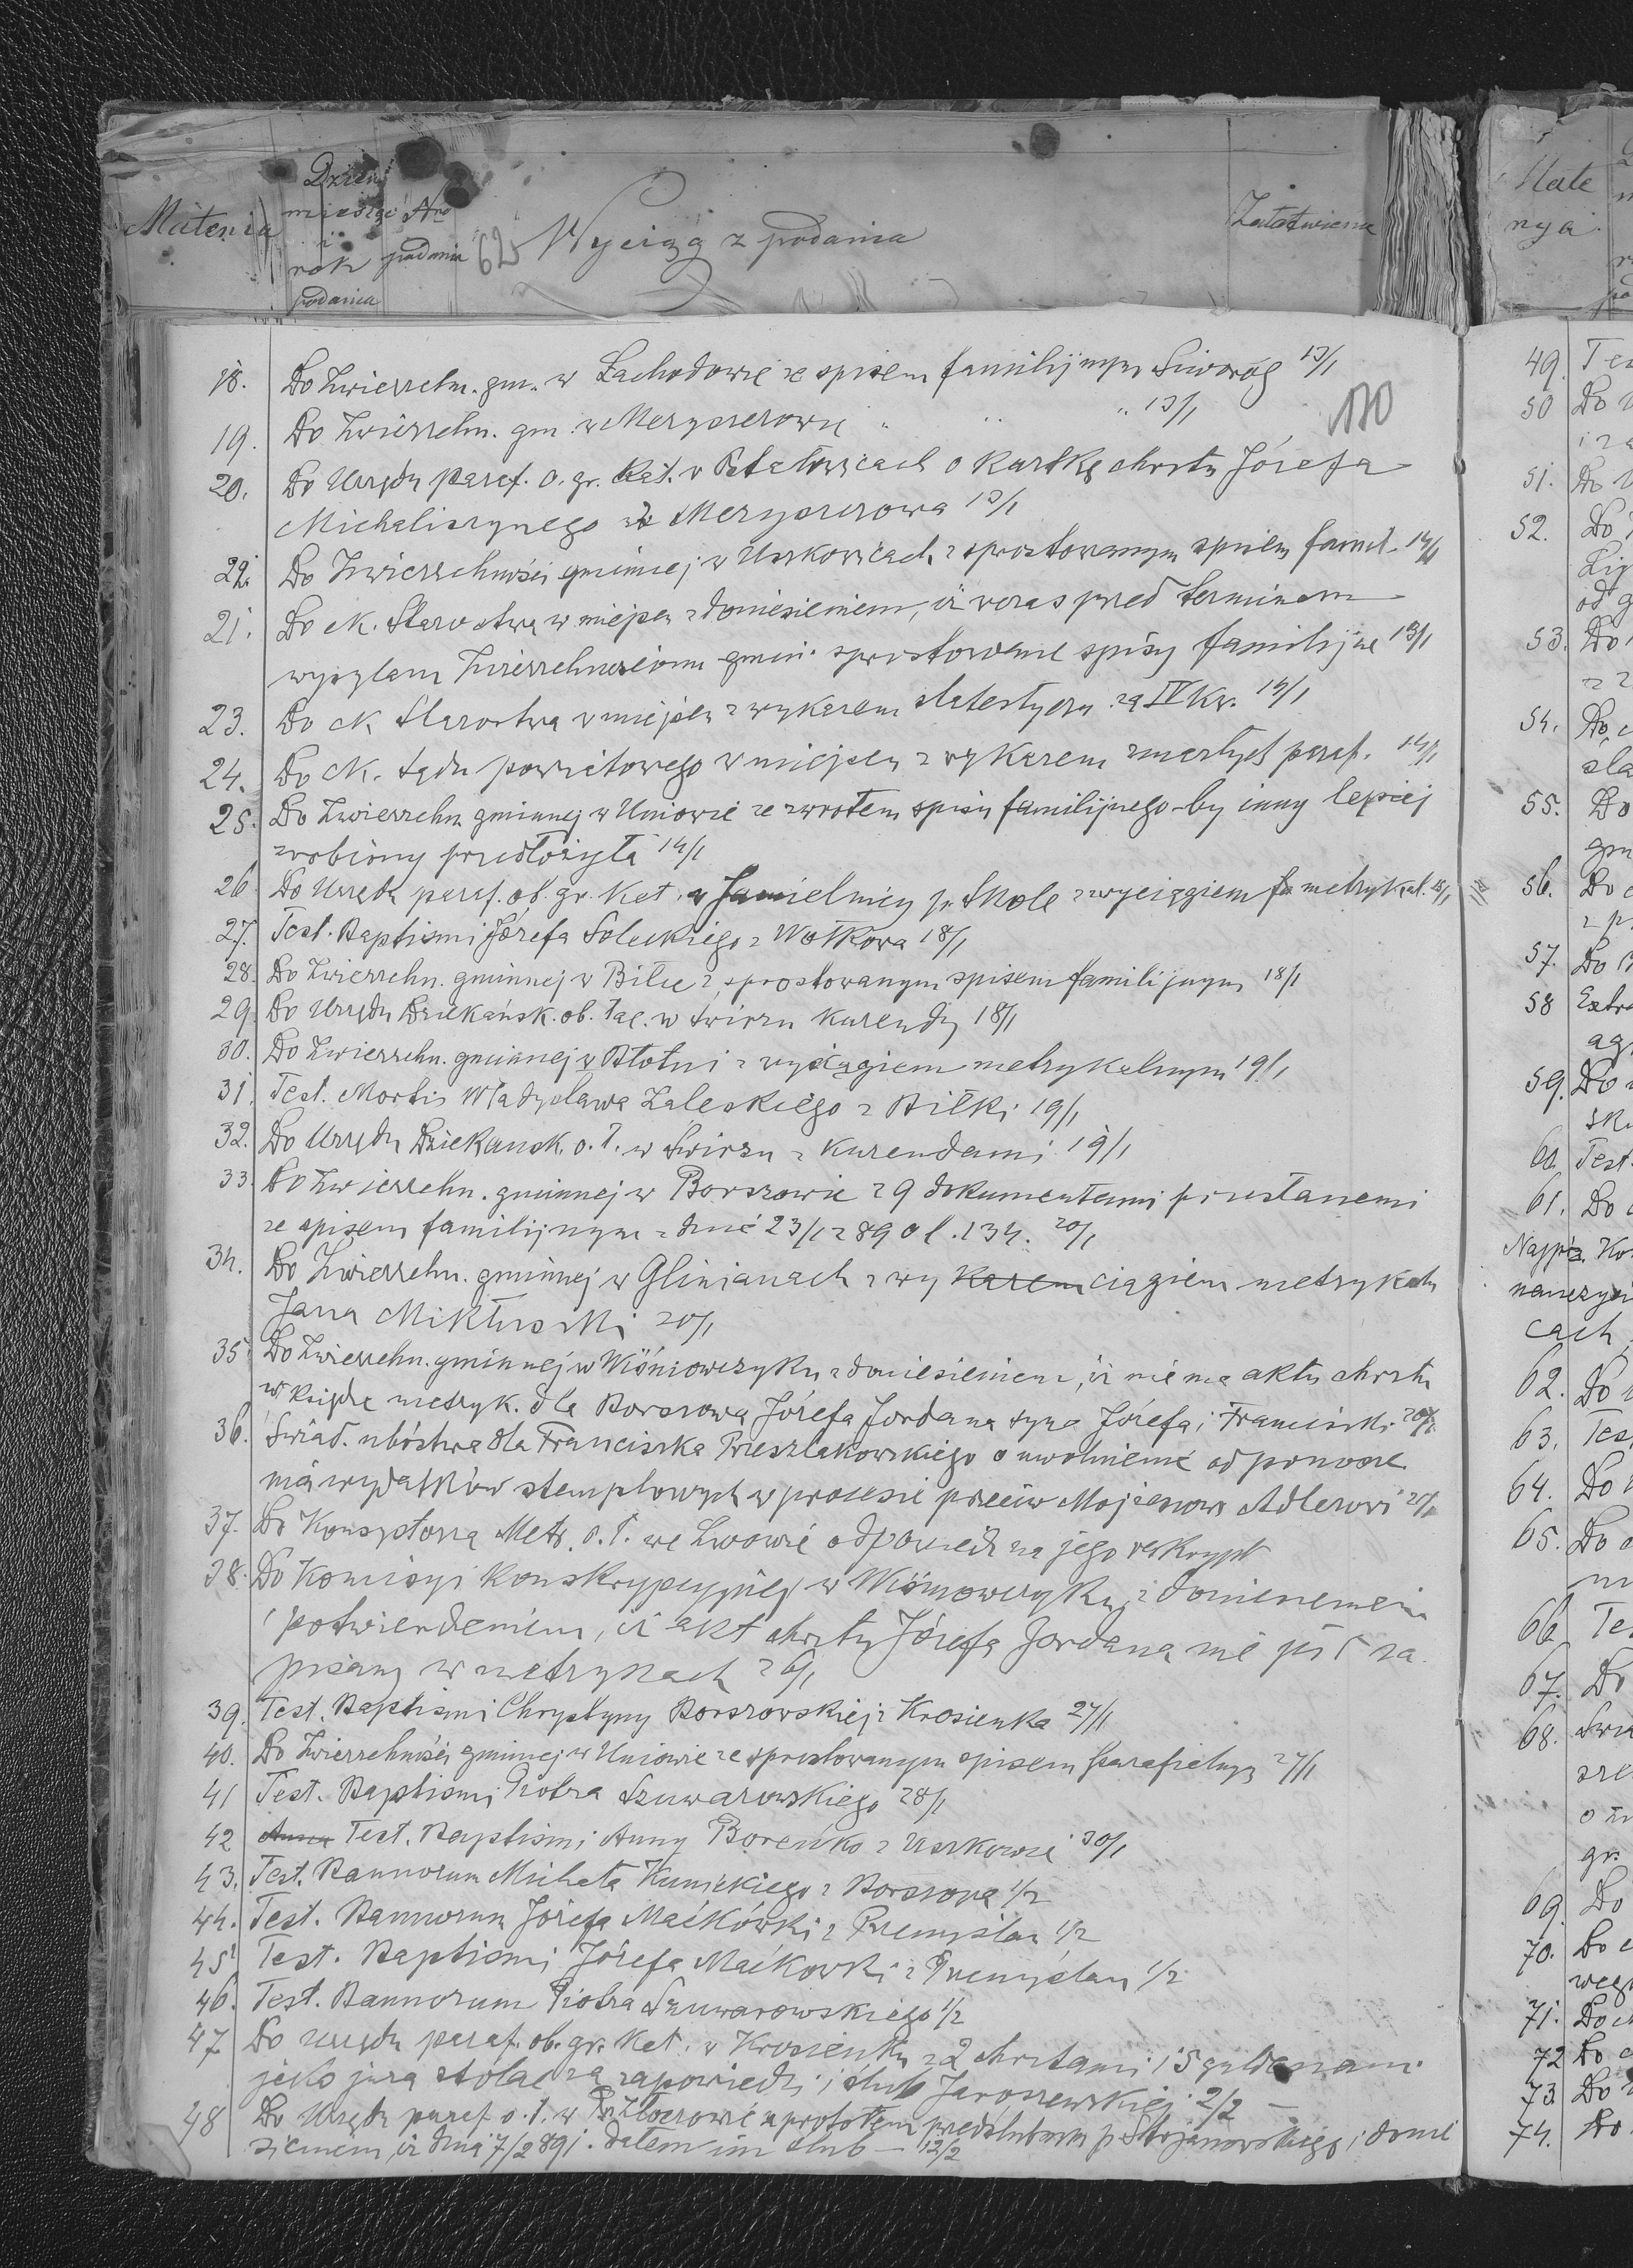 Materia
Dzień miesiąc i rok podania
Nro podania
Wyciąg z podania
Załatwienie
18. Do Zwierzchn. gm. w Lachodowie ze spisem familijnym 13/1
19. Do Zwierzchn. gm. w Meryszczowie " " " 13/1
20. Do Urzędu paraf. o. gr. kat. w o kartkę chrztu Józefa
Michaliszynego z Meryszczowa 13/1
22. Do Zwierzchności gminnej w Uszkowicach z sprostowanym spisem famil. 14/1
21. Do ck. Starostwa w miejscu z doniesieniem, iż wczas przed terminem
wysyłam Zwierzchnościom gmin. sprostowane spisy familijne 13/1
23. Do ck Starostwa w miejscu z wykazem za IV Kw. 14/1
24. Do ck. Sądu powiatowego w miejscu z wykazem zmarłych paraf. 14/1
25. Do Zwierzchn. gminnej w Uniowie ze zwrotem spisu familijnego by inny lepiej
zrobiony przedłożyła 14/1
26. Do Urzędu paraf. ob. gr. kat. w Jamielnicy p. Skole z wyciągiem metrykal. 18/1
27. Test. Baptismi Józefa Soleckiego z Wołkowa 18/1
28. Do Zwierzchn. gminnej w Bilce z sprostowanym spisem familijnym 18/1
29. Do Urzędu Dziekańsk. ob. łac. w Świrzu kurendy 18/1
30. Do Zwierzchn. gminnej w Błotni z wyciągiem metrykalnym 19/1
31. Test. Mortis Władysława Zaleskiego z Biłki 19/1
32. Do Urzędu Dziekansk. o. ł. w Swirzu z kurendami 19/1
33. Do Zwierzchn. gminnej w Borszowie z 9 dokumentami przysłanemi
ze spisem familijnym z dnia 23/1 1890 l. 134. 20/1
34. Do Zwierzchn. gminnej w Glinianach z wy karem ciągiem metrykaln
Jana 20/1
35. Do Zwierzchn. gminnej w Wiśniowczyku z doniesieniem, iż nie ma aktu chrztu
w księdze metryk. dla Borszowa Józefa Jordana syna Józefa i Franciszki 20/1
36. Świad. ubóstwa dla Franciszka Przeszlakowskiego o uwolnienie od ponosze
nia wydatków stemplowych w procesie przeciw Mojżeszowi Adlerowi 21/1
37. Do Konsystorza Metr. o. ł. we Lwowie odpowiedź na jego reskrypt
38. Do Komisyi konskrypcyjnej w Wiśniowczyku z doniesieniem
i potwierdzeniem, iż akt chrztu Józefa Jordana nie jest za
pisany w metrykach 26/1
39. Test. Baptismi Chrystyny Borszowskiej z Krosienka 27/1
40. Do Zwierzchności gminnej w Uniowie ze sprostowanym spisem parafialnym 27/1
41 Test. Baptismi Piotra Szuwarowskiego 28/1
42 Anna Test. Baptismi Anny Boreńko z Uszkowic 30/1
43. Test. Bannorum Michała Kunickiego z Borszowa 1/2
44. Test. Bannorum Józefa Maćkówki z Przemyślan 1/2
45 Test. Baptismi Józefa Maćkowki z Przemyślan 1/2
46. Test. Bannorum Piotra Szuwarowskiego 1/2
47 Do urzędu paraf. ob. gr. kat. w Krosienku z 2 chrztami i 5 guldenami
jako jura stolae za zapowiedzi i ślub Jaroszewskiej 2/2 —
48 Do Urzędu paraf. o. ł. w Złoczowie z protokołem przedślubnym p. Stojanowskiego i donie
sieniem, iż dnia 7/2 891. dałem im ślub — 12/2
Mate
rya
49. Te
50 Do
i za
51. Do
52. Do
od g
53. Do
54. Do
sla
55. Do
gm
56. Do
z p
57. Do
58 Extra
ag
59. Do
sk
60. Test.
61. Do
cach
62. Do
63. Tes
64. Do
65. Do
66. Te
67. Do
68.
gr.
69. Do
70. Do
71. Do
72 Do
73. Do
74. Do